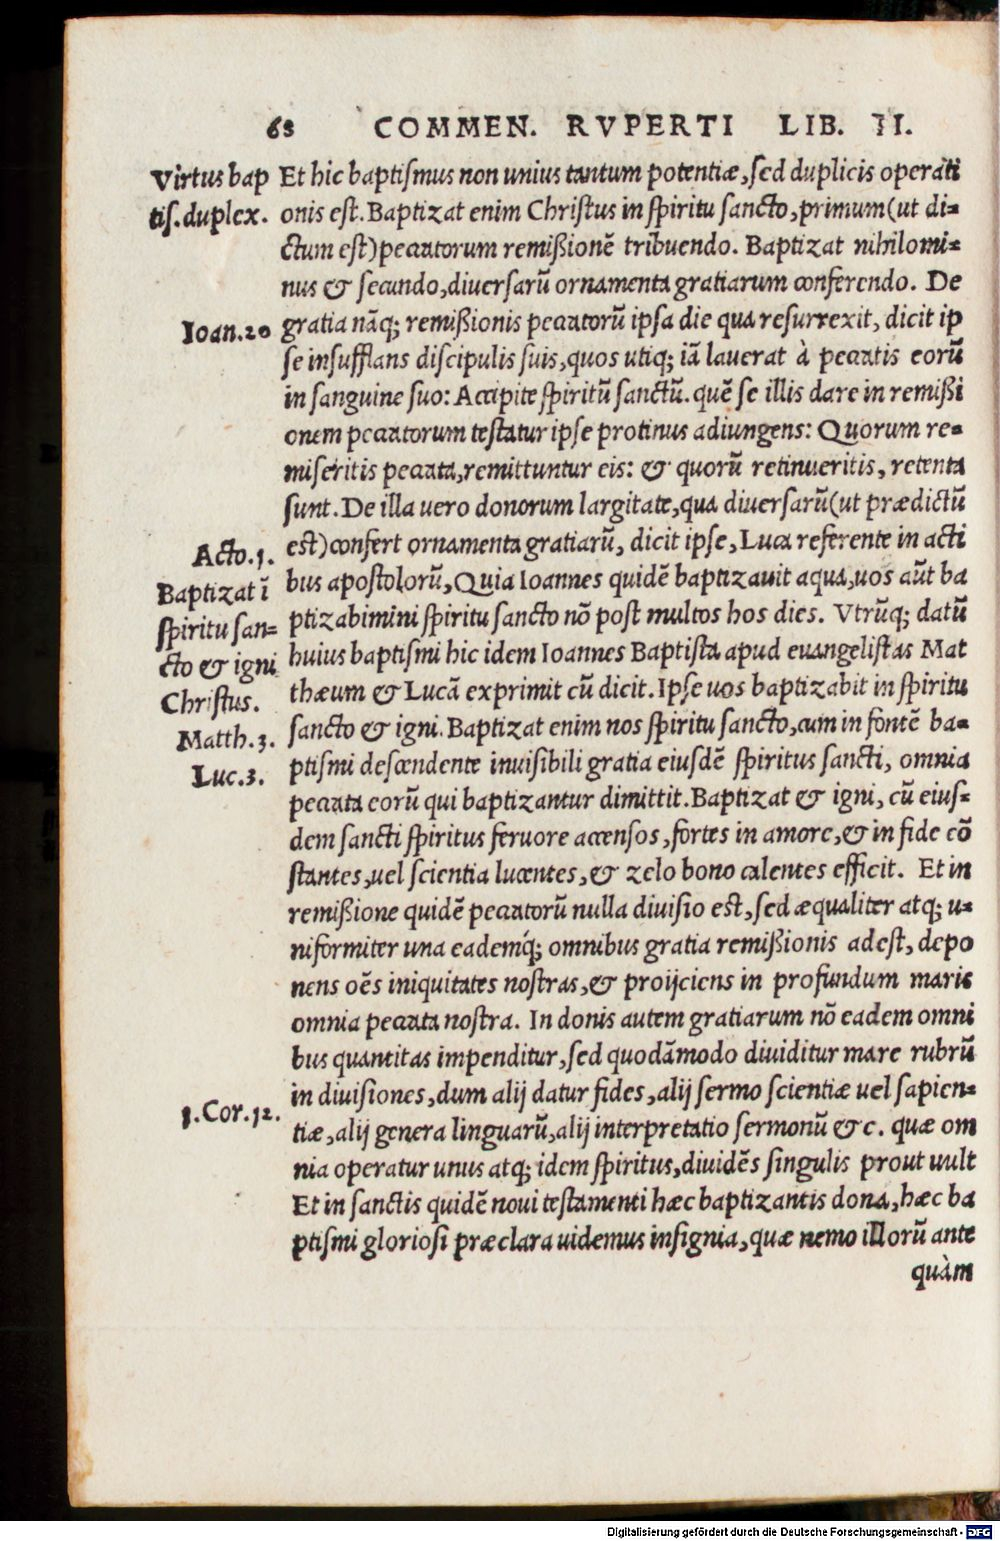 68 COMMEN. RVPERTI LIB. II.
Virtus bap
tis. duplex.
Et hic baptiſmus non unius tantum potentiæ, ſed duplicis operati
onis eſt. Baptizat enim Chriſtus in ſpiritu ſancto, primum (ut di=
ctum eſt) peccatorum remißionē tribuendo. Baptizat nihilomi=
nus & ſecundo, diuerſarū ornamenta gratiarum conferendo. De
Ioan.20
gratia nāq; remißionis peccatorū ipſa die qua reſurrexit, dicit ip
ſe inſufflans diſcipulis ſuis, quos utiq; iā lauerat à peccatis eorū
in ſanguine ſuo: Accipite ſpiritū ſanctū. quē ſe illis dare in remißi
onem peccatorum teſtatur ipſe protinus adiungens: Quorum re=
miſeritis peccata, remittuntur eis: & quorū retinueritis, retenta
ſunt. De illa uero donorum largitate, qua diuerſarū (ut prædictū
Acto.1.
eſt) confert ornamenta gratiarū, dicit ipſe, Luca referente in acti
Baptizat ī
ſpiritu ſan=
cto & igni
Chriſtus.
bus apoſtolorū, Quia Ioannes quidē baptizauit aqua, uos aūt ba
ptizabimini ſpiritu ſancto nō poſt multos hos dies. Vtrūq; datū
huius baptiſmi hic idem Ioannes Baptiſta apud euangeliſtas Mat
thæum & Lucā exprimit cū dicit. Ipſe uos baptizabit in ſpiritu
Matth.3.
Luc.3.
ſancto & igni. Baptizat enim nos ſpiritu ſancto, cum in fontē ba=
ptiſmi deſcendente inuiſibili gratia eiuſdē ſpiritus ſancti, omnia
peccata eorū qui baptizantur dimittit. Baptizat & igni, cū eiuſ=
dem ſancti ſpiritus feruore accenſos, fortes in amore, & in fide cō
ſtantes, uel ſcientia lucentes, & zelo bono calentes efficit. Et in
remißione quidē peccatorū nulla diuiſio eſt, ſed æqualiter atq; u=
niformiter una eademq́; omnibus gratia remißionis adeſt, depo
nens oēs iniquitates noſtras, & proijciens in profundum maris
omnia peccata noſtra. In donis autem gratiarum nō eadem omni
bus quantitas impenditur, ſed quodāmodo diuiditur mare rubrū
in diuiſiones, dum alij datur fides, alij ſermo ſcientiæ uel ſapien=
1.Cor.12.
tiæ, alij genera linguarū, alij interpretatio ſermonū &c. quæ om
nia operatur unus atq; idem ſpiritus, diuidēs ſingulis prout uult
Et in ſanctis quidē noui teſtamenti hæc baptizantis dona, hæc ba
ptiſmi glorioſi præclara uidemus inſignia, quæ nemo illorū ante
quàm
Digitalisierung gefördert durch die Deutsche Forschungsgemeinschaft - DFG